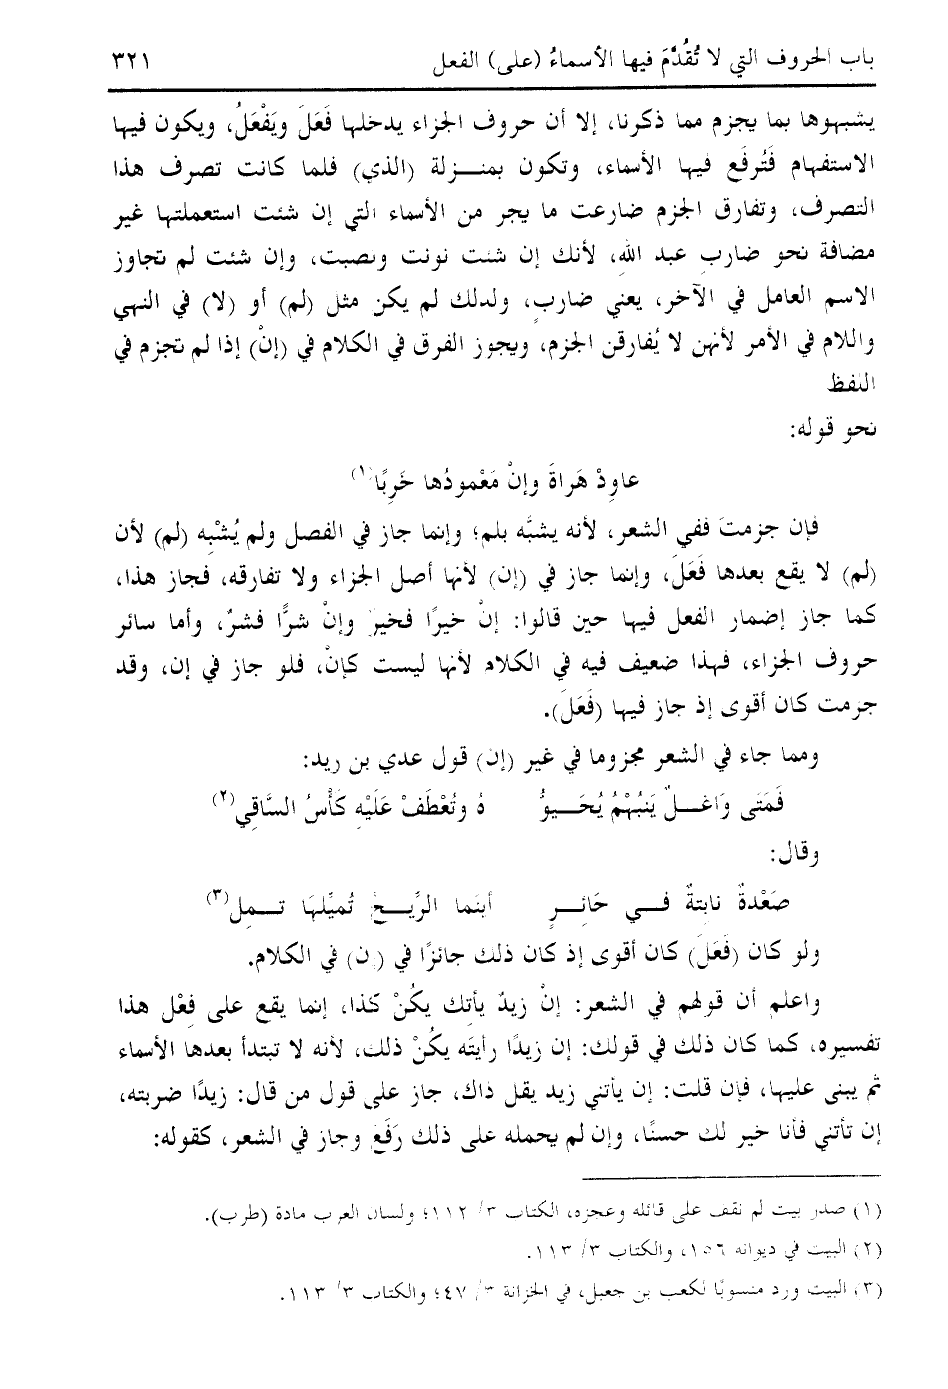 باب الحروف التي لا تُقُدَّمَ فيها الأسماءُ (على) الفعل ٣٢١
يشبهوها بما يجزم مما ذكرنا، إلا أن حروف الجزاء يدخلها فَعَلَ ويَفْعَلُ، ويكون فيها
الاستفهام فَتُرفَع فيها الأسماء، وتكون بمنـــزلة (الذي) فلما كانت تصرف هذا
التصرف، وتفارق الجزم ضارعت ما يجر من الأسماء التي إن شئت استعملتها غير
مضافة نحو ضارب عبد اللهِ، لأنك إن شئت نونت ونصبت، وإن شئت لم تجاوز
الاسم العامل في الآخر، يعني ضاربٍ، ولذلك لم يكن مثل (لم) أو (لا) في النهي
واللام في الأمر لأنهن لا يُفارقن الجزم، ويجوز الفرق في الكلام في (إنْ) إذا لم تجزم في
اللفظ
نحو قوله:
عاوِدْ هَراةَ وإنْ مَعْمودُها خَرِبًا(١)
فإن جزمتَ ففي الشعر، لأنه يشبَّه بلم؛ وإنما جاز في الفصل ولم يُشْبِه (لم) لأن
(لم) لا يقع بعدها فَعَلَ، وإنما جاز في (إن) لأنها أصل الجزاء ولا تفارقه، فجاز هذا،
كما جاز إضمار الفعل فيها حين قالوا: إنْ خيرًا فخيرٌ وإنْ شرًّا فشرٌ، وأما سائر
حروف الجزاء، فهذا ضعيف فيه في الكلام لأنها ليست كإنْ، فلو جاز في إن، وقد
جزمت كان أقوى إذ جاز فيها (فَعَلَ).
ومما جاء في الشعر مجزوما في غير (إن) قول عدي بن زيد:
فَمَتَى وَاغـــلٌ يَنبُهْمُ يُحَـــيوُّ هُ وتُعْطَفْ عَلَيْهِ كَأْسُ السَّاقِي(٢)
وقال:
صَعْدةٌ نابتةٌ فـــي حَائِـــرٍ أينَما الرِّيـــحُ تُميِّلهَا تـــمِل(٣)
ولو كان (فَعَلَ) كان أقوى إذ كان ذلك جائزًا في (إن) في الكلام.
واعلم أن قولهم في الشعر: إنْ زيدٌ يأتك يكُنْ كذا، إنما يقع على فِعْل هذا
تفسيره، كما كان ذلك في قولك: إن زيدًا رأيتَه يكُنْ ذلك، لأنه لا تبتدأ بعدها الأسماء
ثم يبنى عليها، فإن قلت: إن يأتني زيد يقل ذاك، جاز على قول من قال: زيدًا ضربته،
إن تأتني فأنا خير لك حسنًا، وإن لم يحمله على ذلك رَفَعَ وجاز في الشعر، كقوله:
(١) صدر بيت لم نقف على قائله وعجزه، الكتاب ٣/ ١١٢؛ ولسان العرب مادة (طرب).
(٢) البيت في ديوانه ١٥٦، والكتاب ٣/ ١١٣.
(٣) البيت ورد منسوبًا لكعب بن جعيل، في الخزانة ٣/ ٤٧؛ والكتاب ٣/ ١١٣.